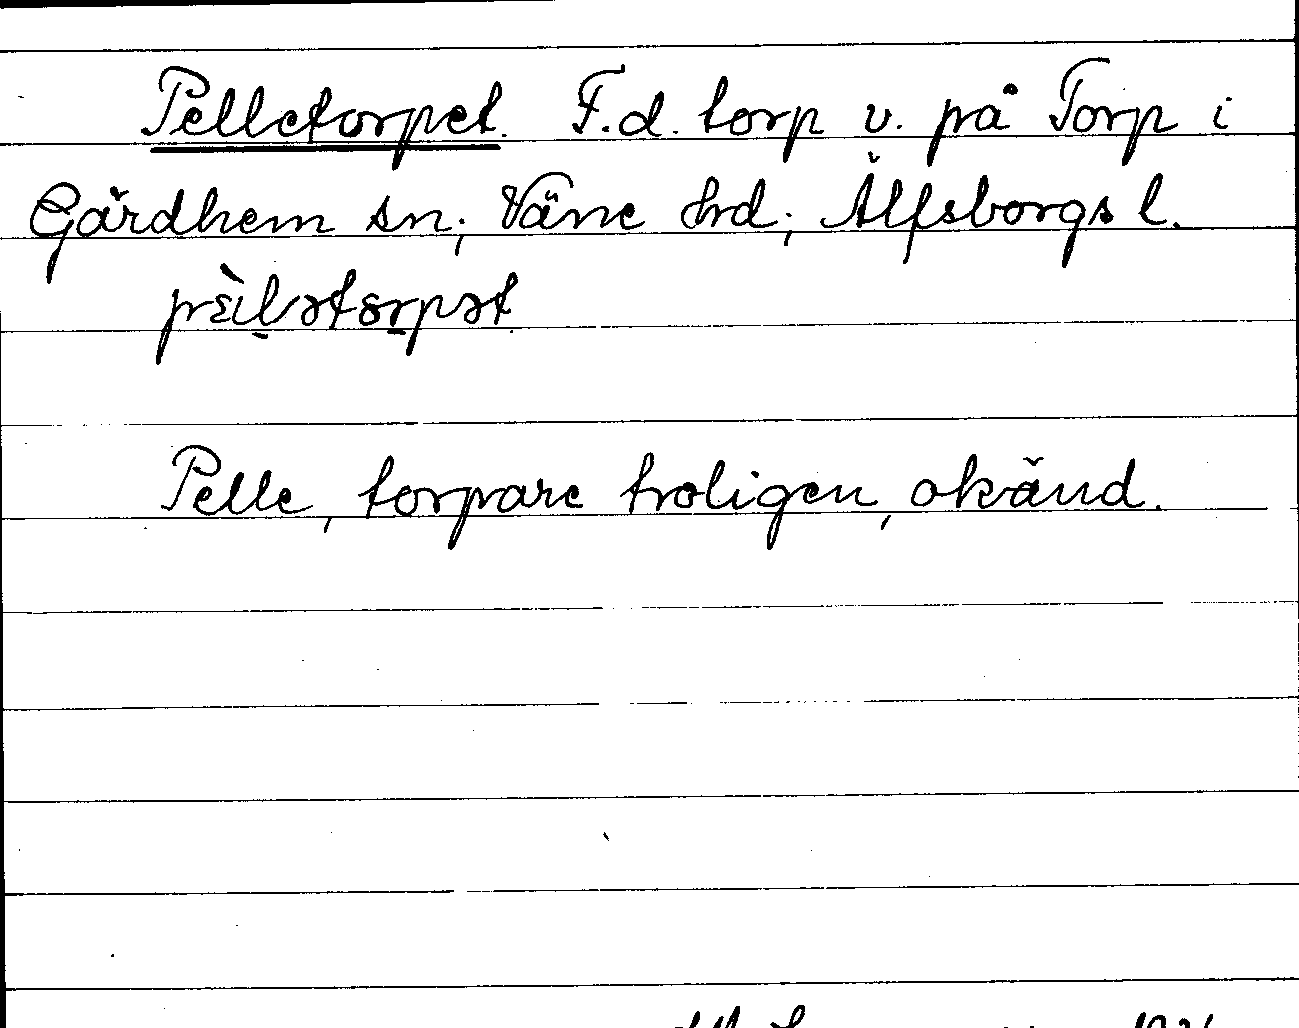 Pelletorpet. F.d. torp v. på Torp i
Gärdhem sn; Väne hrd; Älfsborgs l.
Pelle, torpare troligen, okänd.